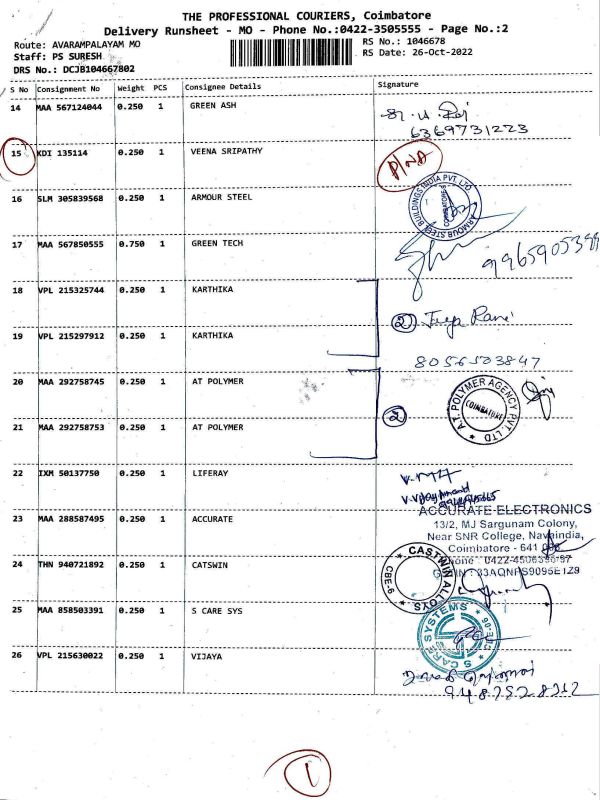 THE PROFESSIONAL COURIERS, Coimbatore
Delivery Runsheet - MO - Phone No.:0422-3505555 - Page No.:2
Route: AVARAMPALAYAM MO
RS No.: 1046678
Staff: PS SURESH
RS Date: 26-Oct-2022
DRS No.: DCJB104667802
S No Consignment No Weight PCS Consignee Details Signature
14 MAA 567124044 0.250 1 GREEN ASH
6369731223
15 KDI 135114 0.250 1 VEENA SRIPATHY P/NA
16 SLM 305839568 0.250 1 ARMOUR STEEL
ARMOUR STEEL BUILDINGS INDIA PVT. LTD.
17 MAA 567850555 0.750 1 GREEN TECH
18 VPL 215325744 0.250 1 KARTHIKA
2
19 VPL 215297912 0.250 1 KARTHIKA
8056503847
20 MAA 292758745 0.250 1 AT POLYMER
A.T. POLYMER AGENCY PVT. LTD
COIMBATORE
21 MAA 292758753 0.250 1 AT POLYMER
2
22 IXM 50137750 0.250 1 LIFERAY
23 MAA 288587495 0.250 1 ACCURATE
ACCURATE ELECTRONICS
13/2, MJ Sargunam Colony,
Near SNR College, Navaindia,
Coimbatore - 641
24 THN 940721892 0.250 1 CATSWIN
CASTWIN ALLOYS
CBE-9
25 MAA 858503391 0.250 1 S CARE SYS
S CARE SYSTEMS
CBE-06
26 VPL 215630022 0.250 1 VIJAYA
1